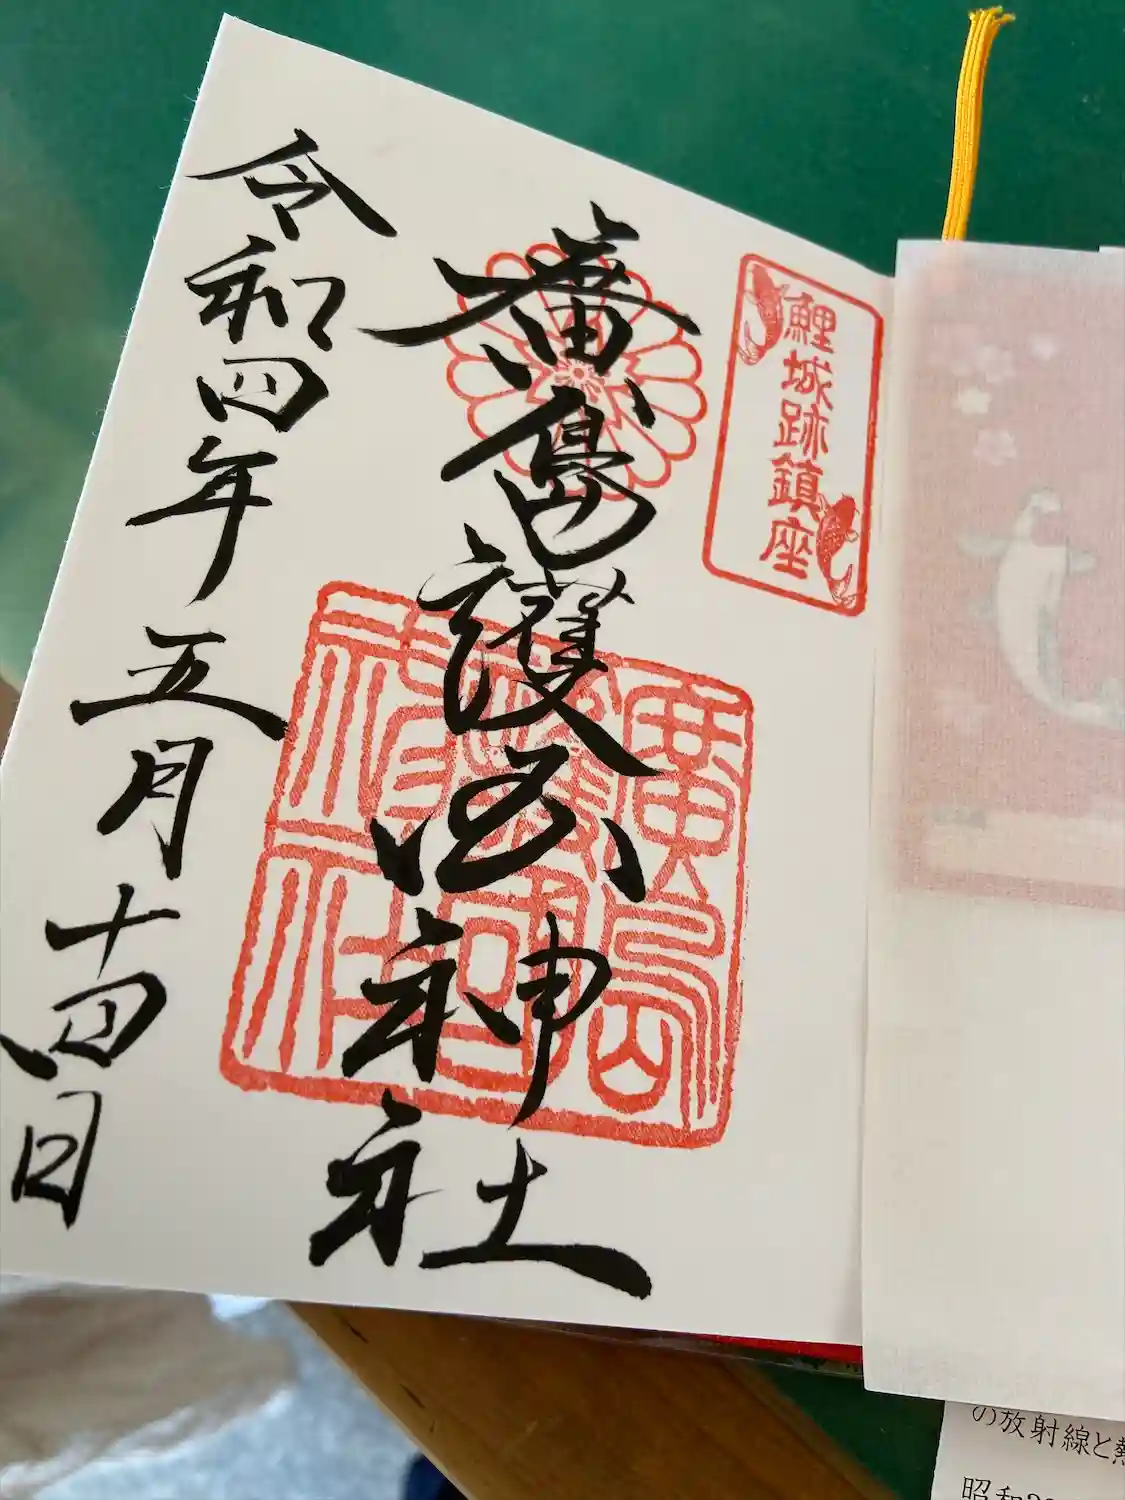 鯉城跡鎮座
廣島護国神社
廣島
護國
神社
令和四年五月十四日
の放射線と熱
昭和20